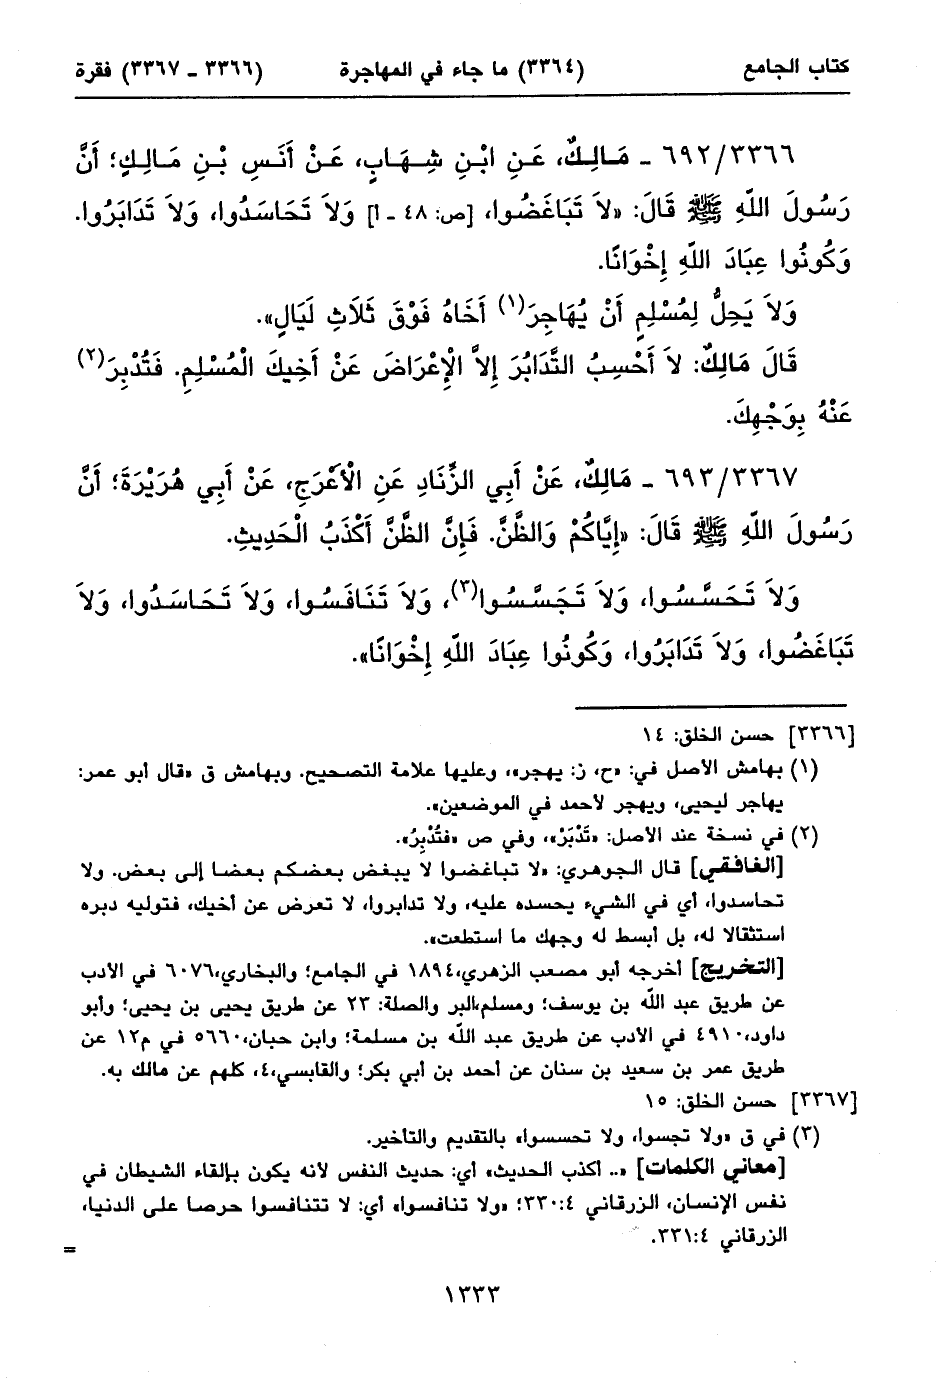 كتاب الجامع (٣٣٦٤) ما جاء في المهاجرة (٣٣٦٦ ـ ٣٣٦٧) فقرة
٦٩٢/٣٣٦٦ ـ مَالِكٌ، عَنِ ابْنِ شِهَابٍ، عَنْ أَنَسِ بْنِ مَالِكٍ؛ أَنَّ
رَسُولَ اللَّهِ ﷺ قَالَ: «لاَ تَبَاغَضُوا، [ص: ٤٨ ـ أ] وَلاَ تَحَاسَدُوا، وَلاَ تَدَابَرُوا.
وَكُونُوا عِبَادَ اللَّهِ إِخْوَانًا.
وَلاَ يَحِلُّ لِمُسْلِمٍ أَنْ يُهَاجِرَ(١) أَخَاهُ فَوْقَ ثَلاَثِ لَيَالٍ».
قَالَ مَالِكٌ: لاَ أَحْسِبُ التَّدَابُرَ إِلاَّ الْإِعْرَاضَ عَنْ أَخِيكَ الْمُسْلِمِ. فَتُدْبِرَ(٢)
عَنْهُ بِوَجْهِكَ.
٦٩٣/٣٣٦٧ ـ مَالِكٌ، عَنْ أَبِي الزِّنَادِ عَنِ الْأَعْرَجِ، عَنْ أَبِي هُرَيْرَةَ؛ أَنَّ
رَسُولَ اللَّهِ ﷺ قَالَ: «إِيَّاكُمْ وَالظَّنَّ. فَإِنَّ الظَّنَّ أَكْذَبُ الْحَدِيثِ.
وَلاَ تَحَسَّسُوا، وَلاَ تَجَسَّسُوا(٣)، وَلاَ تَنَافَسُوا، وَلاَ تَحَاسَدُوا، وَلاَ
تَبَاغَضُوا، وَلاَ تَدَابَرُوا، وَكُونُوا عِبَادَ اللَّهِ إِخْوَانًا».
[٣٣٦٦] حسن الخلق: ١٤
(١) بهامش الأصل في: «ح، ز: يهجر»، وعليها علامة التصحيح. وبهامش ق «قال أبو عمر:
يهاجر ليحيى، ويهجر لأحمد في الموضعين».
(٢) في نسخة عند الأصل: «تَدْبَرْ»، وفي ص «فتُدْبِرُ».
[الغافقي] قال الجوهري: «لا تباغضوا لا يبغض بعضكم بعضا إلى بعض. ولا
تحاسدوا، أي في الشيء يحسده عليه، ولا تدابروا، لا تعرض عن أخيك، فتوليه دبره
استثقالا له، بل أبسط له وجهك ما استطعت».
[التخريج] أخرجه أبو مصعب الزهري،١٨٩٤ في الجامع؛ والبخاري،٦٠٧٦ في الأدب
عن طريق عبد الله بن يوسف؛ ومسلم،البر والصلة: ٢٣ عن طريق يحيى بن يحيى؛ وأبو
داود،٤٩١٠ في الأدب عن طريق عبد الله بن مسلمة؛ وابن حبان،٥٦٦٠ في م١٢ عن
طريق عمر بن سعيد بن سنان عن أحمد بن أبي بكر؛ والقابسي،٤، كلهم عن مالك به.
[٣٣٦٧] حسن الخلق: ١٥
(٣) في ق «ولا تجسوا، ولا تحسسوا» بالتقديم والتأخير.
[معاني الكلمات] «.. أكذب الحديث» أي: حديث النفس لأنه يكون بإلقاء الشيطان في
نفس الإنسان، الزرقاني ٣٣٠:٤؛ «ولا تنافسوا» أي: لا تتنافسوا حرصا على الدنيا،
الزرقاني ٣٣١:٤.
=
١٣٣٣